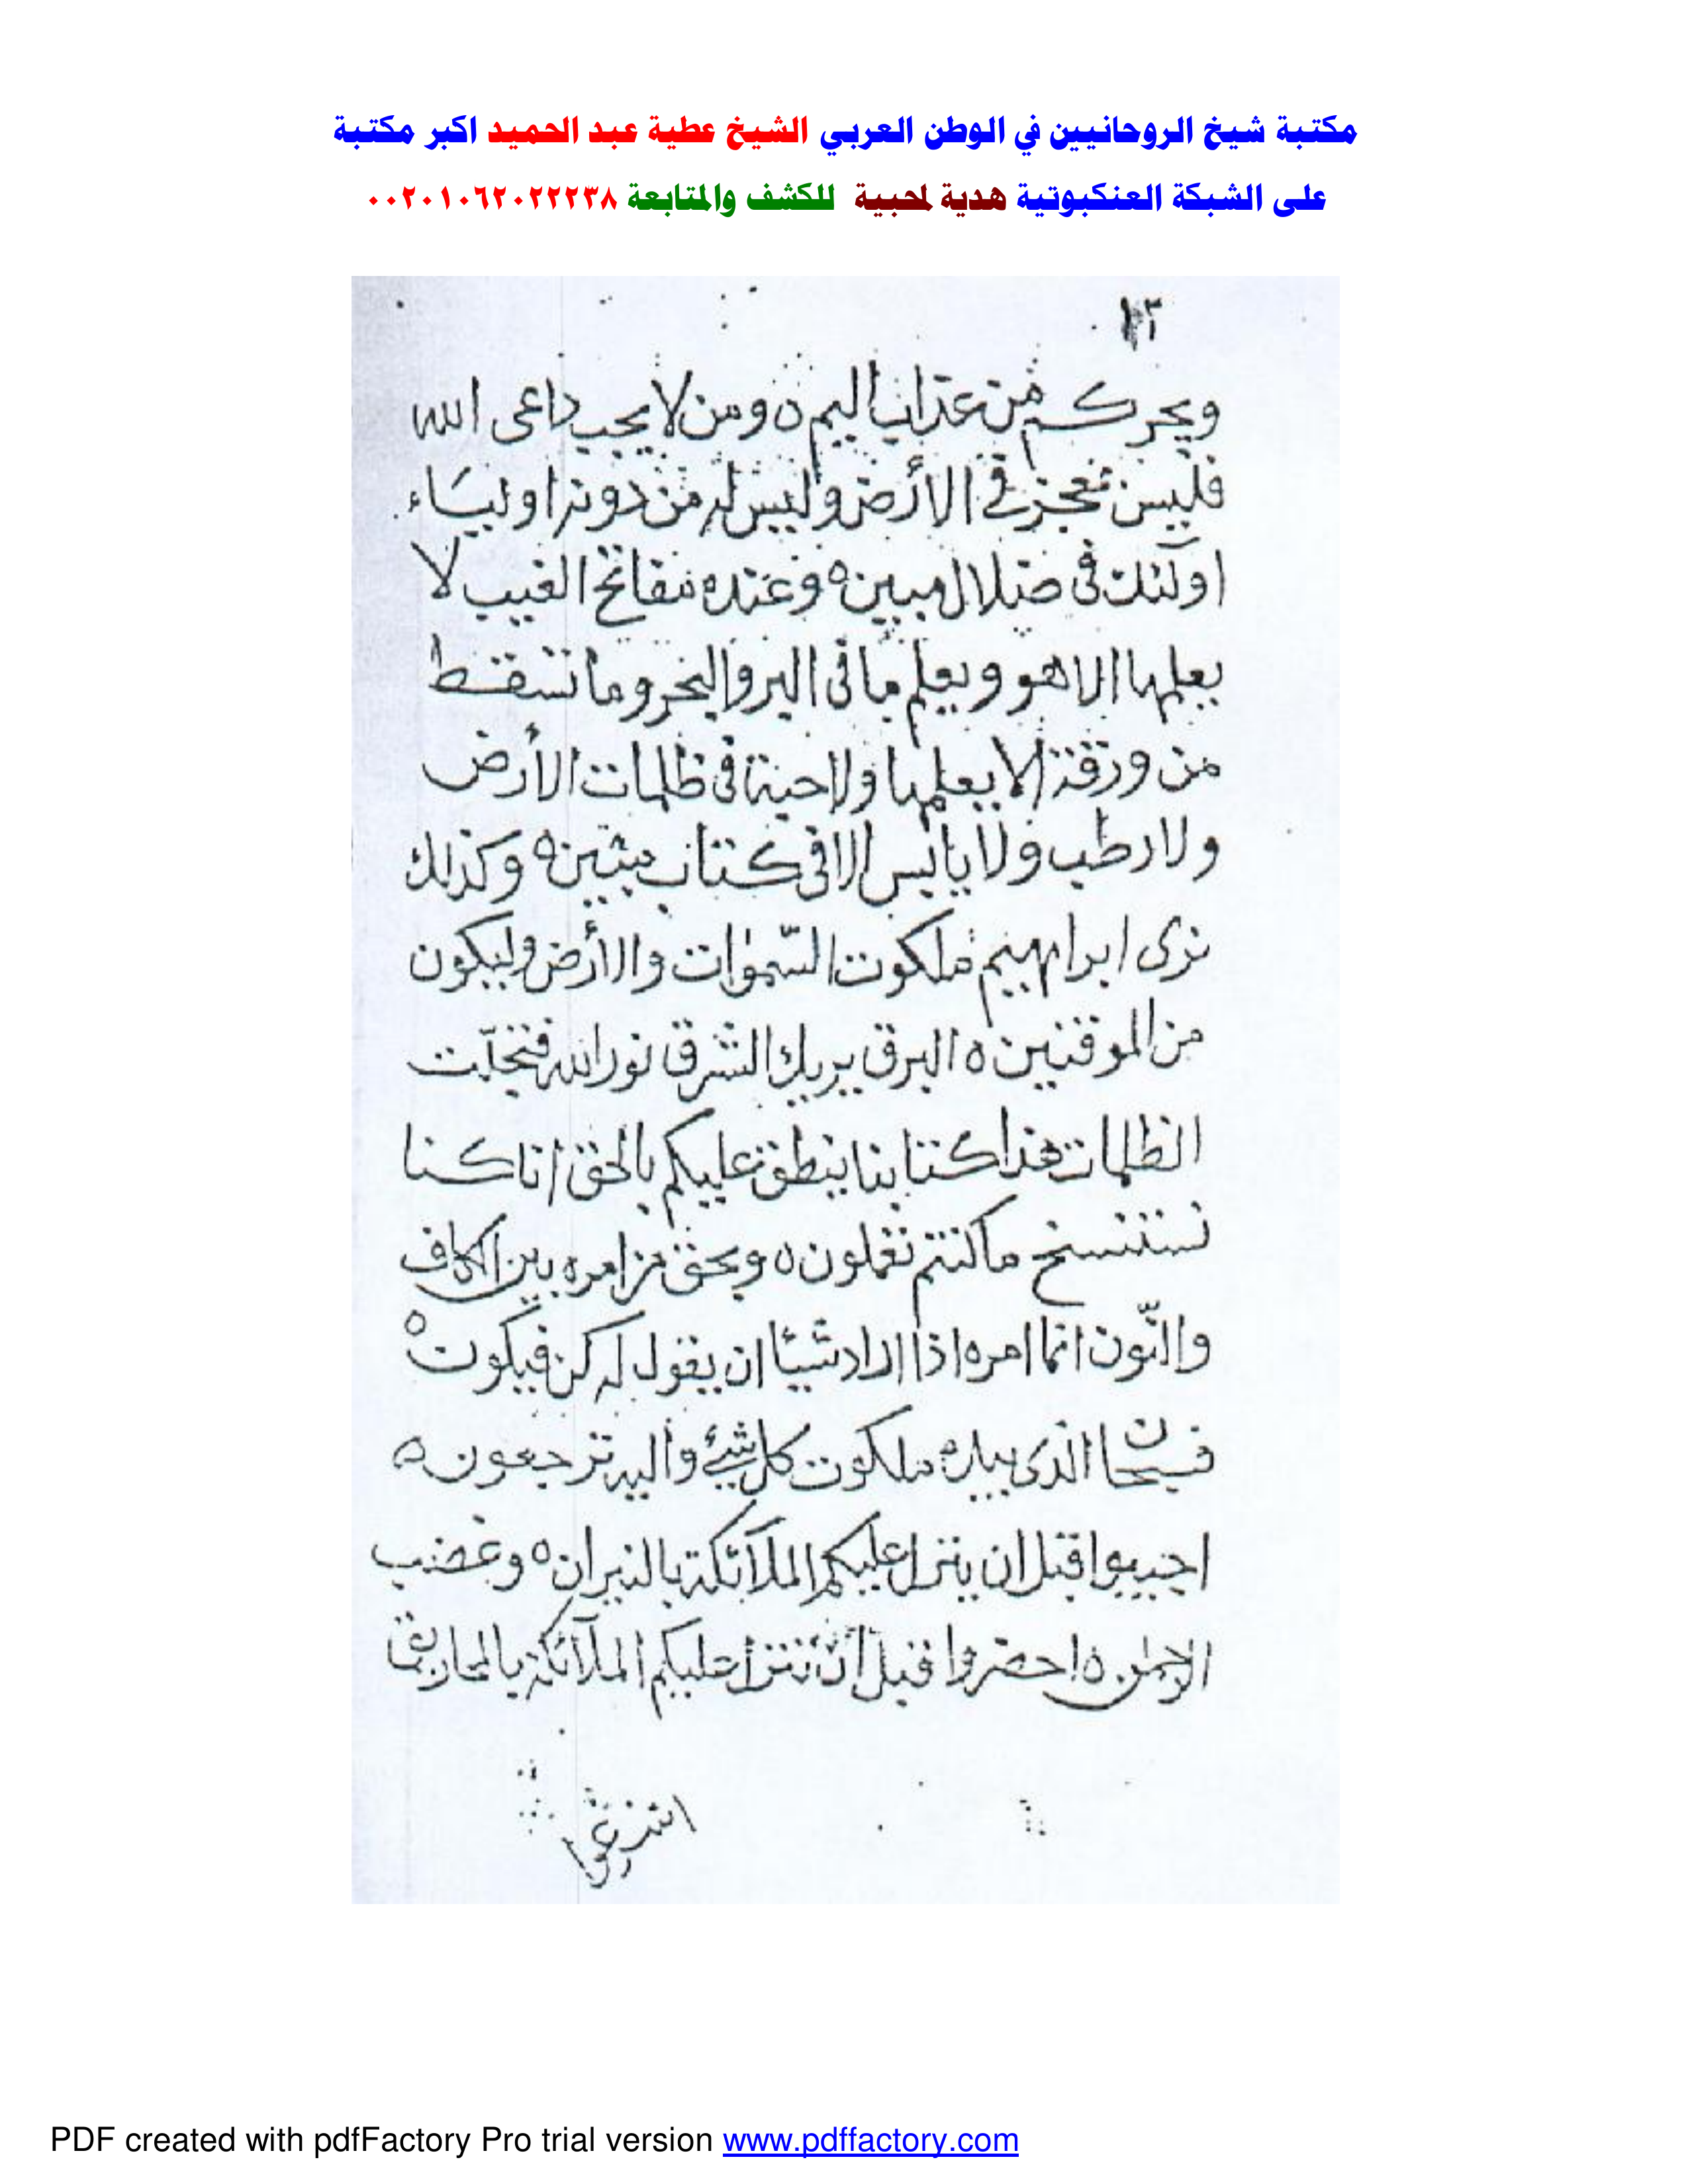 مكتبة شيخ الروحانيين في الوطن العربي الشيخ عطية عبد الحميد اكبر مكتبة
على الشبكة العنكبوتية هدية لمحبيه للكشف والمتابعة ٠٠٢٠١٠٦٢٠٢٢٢٣٨
ويجركم من عذاب اليم ه ومن لا يجب داعى الله
فليس بمعجز فى الأرض وليس له من دونه اولياء
اولئك فى ضلال مبين ه وعنده مفاتح الغيب لا
يعلمها الا هو ويعلم ما فى البر والبحر وما تسقط
من ورقة الا يعلمها ولا حبة فى ظلمات الأرض
ولا رطب ولا يابس الا فى كتاب مبين ه وكذلك
نرى ابراهيم ملكوت السموات والأرض وليكون
من الموقنين ه البرق يريك الشرق نور الله فتجلت
الظلمات هذا كتابنا ينطق عليكم بالحق انا كنا
نستنسخ ما كنتم تعملون ه وبحق من امره بين الكاف
والنون انما امره اذا اراد شيئا ان يقول له كن فيكون ه
فسبحان الذى بيده ملكوت كل شئ واليه ترجعون ه
اجيبوا قبل ان ينزل عليكم الملآئكة بالنيران ه وغضب
الرحمن ه احضروا قبل ان تتنزل عليكم الملآئكة
PDF created with pdfFactory Pro trial version www.pdffactory.com